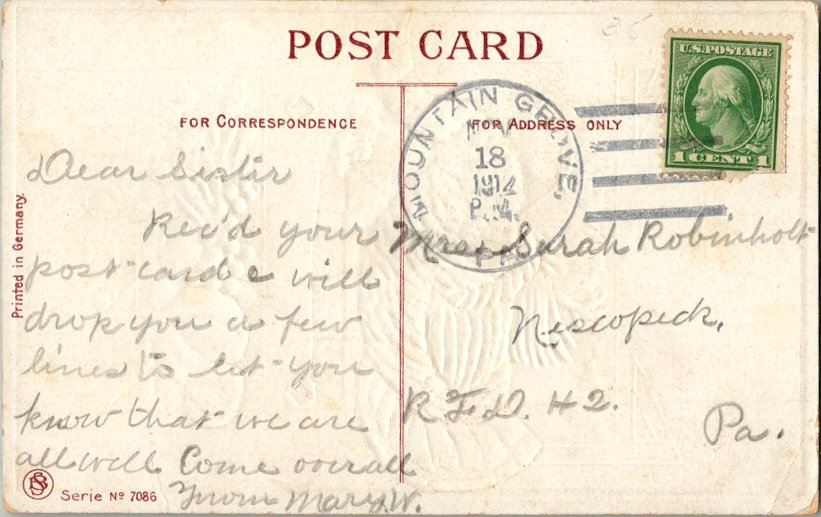 POST CARD
U.S. POSTAGE
1 CENT 1
MOUNTAIN GROVE,
18
1912
P.M.
PA
FOR CORRESPONDENCE
FOR ADDRESS ONLY
Dear Sistir
Rec'd your
post-card & will
drop you a few
lines to let you
know that we are
all well Come over all
From Mary W.
Mrs. Surah Robinholt
Nescopeck,
R.F.D. #2.
Pa.
Printed in Germany.
Serie No 7086